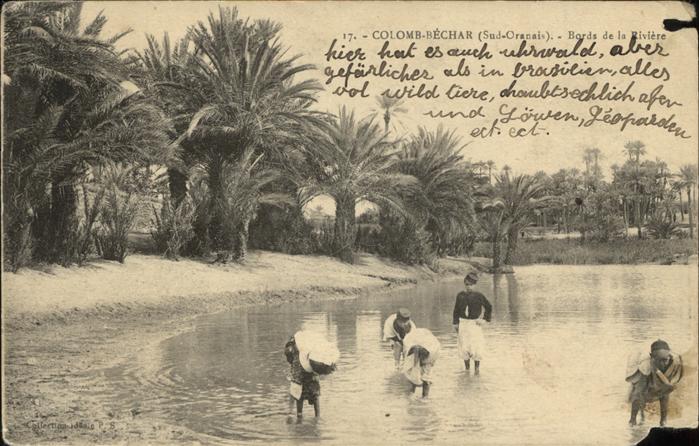 17. - COLOMB-BÉCHAR (Sud-Oranais). - Bords de la Rivière
hier hat es auch uhrwald, aber
gefärlicher als in brasilien, alles
vol wild tiere, haubtsechlich afen
und Löwen, Leoparden
ect. ect.
Collection idéale P. S.